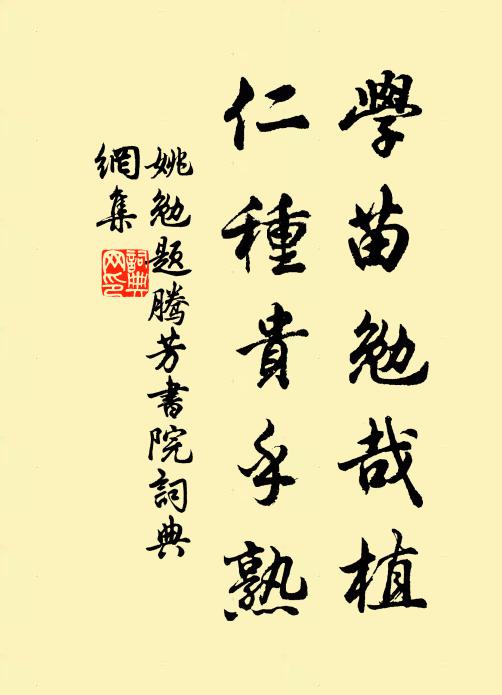 學苗勉哉植
仁種貴乎熟
姚勉題騰芳書院詞典
網集
詞典
网印